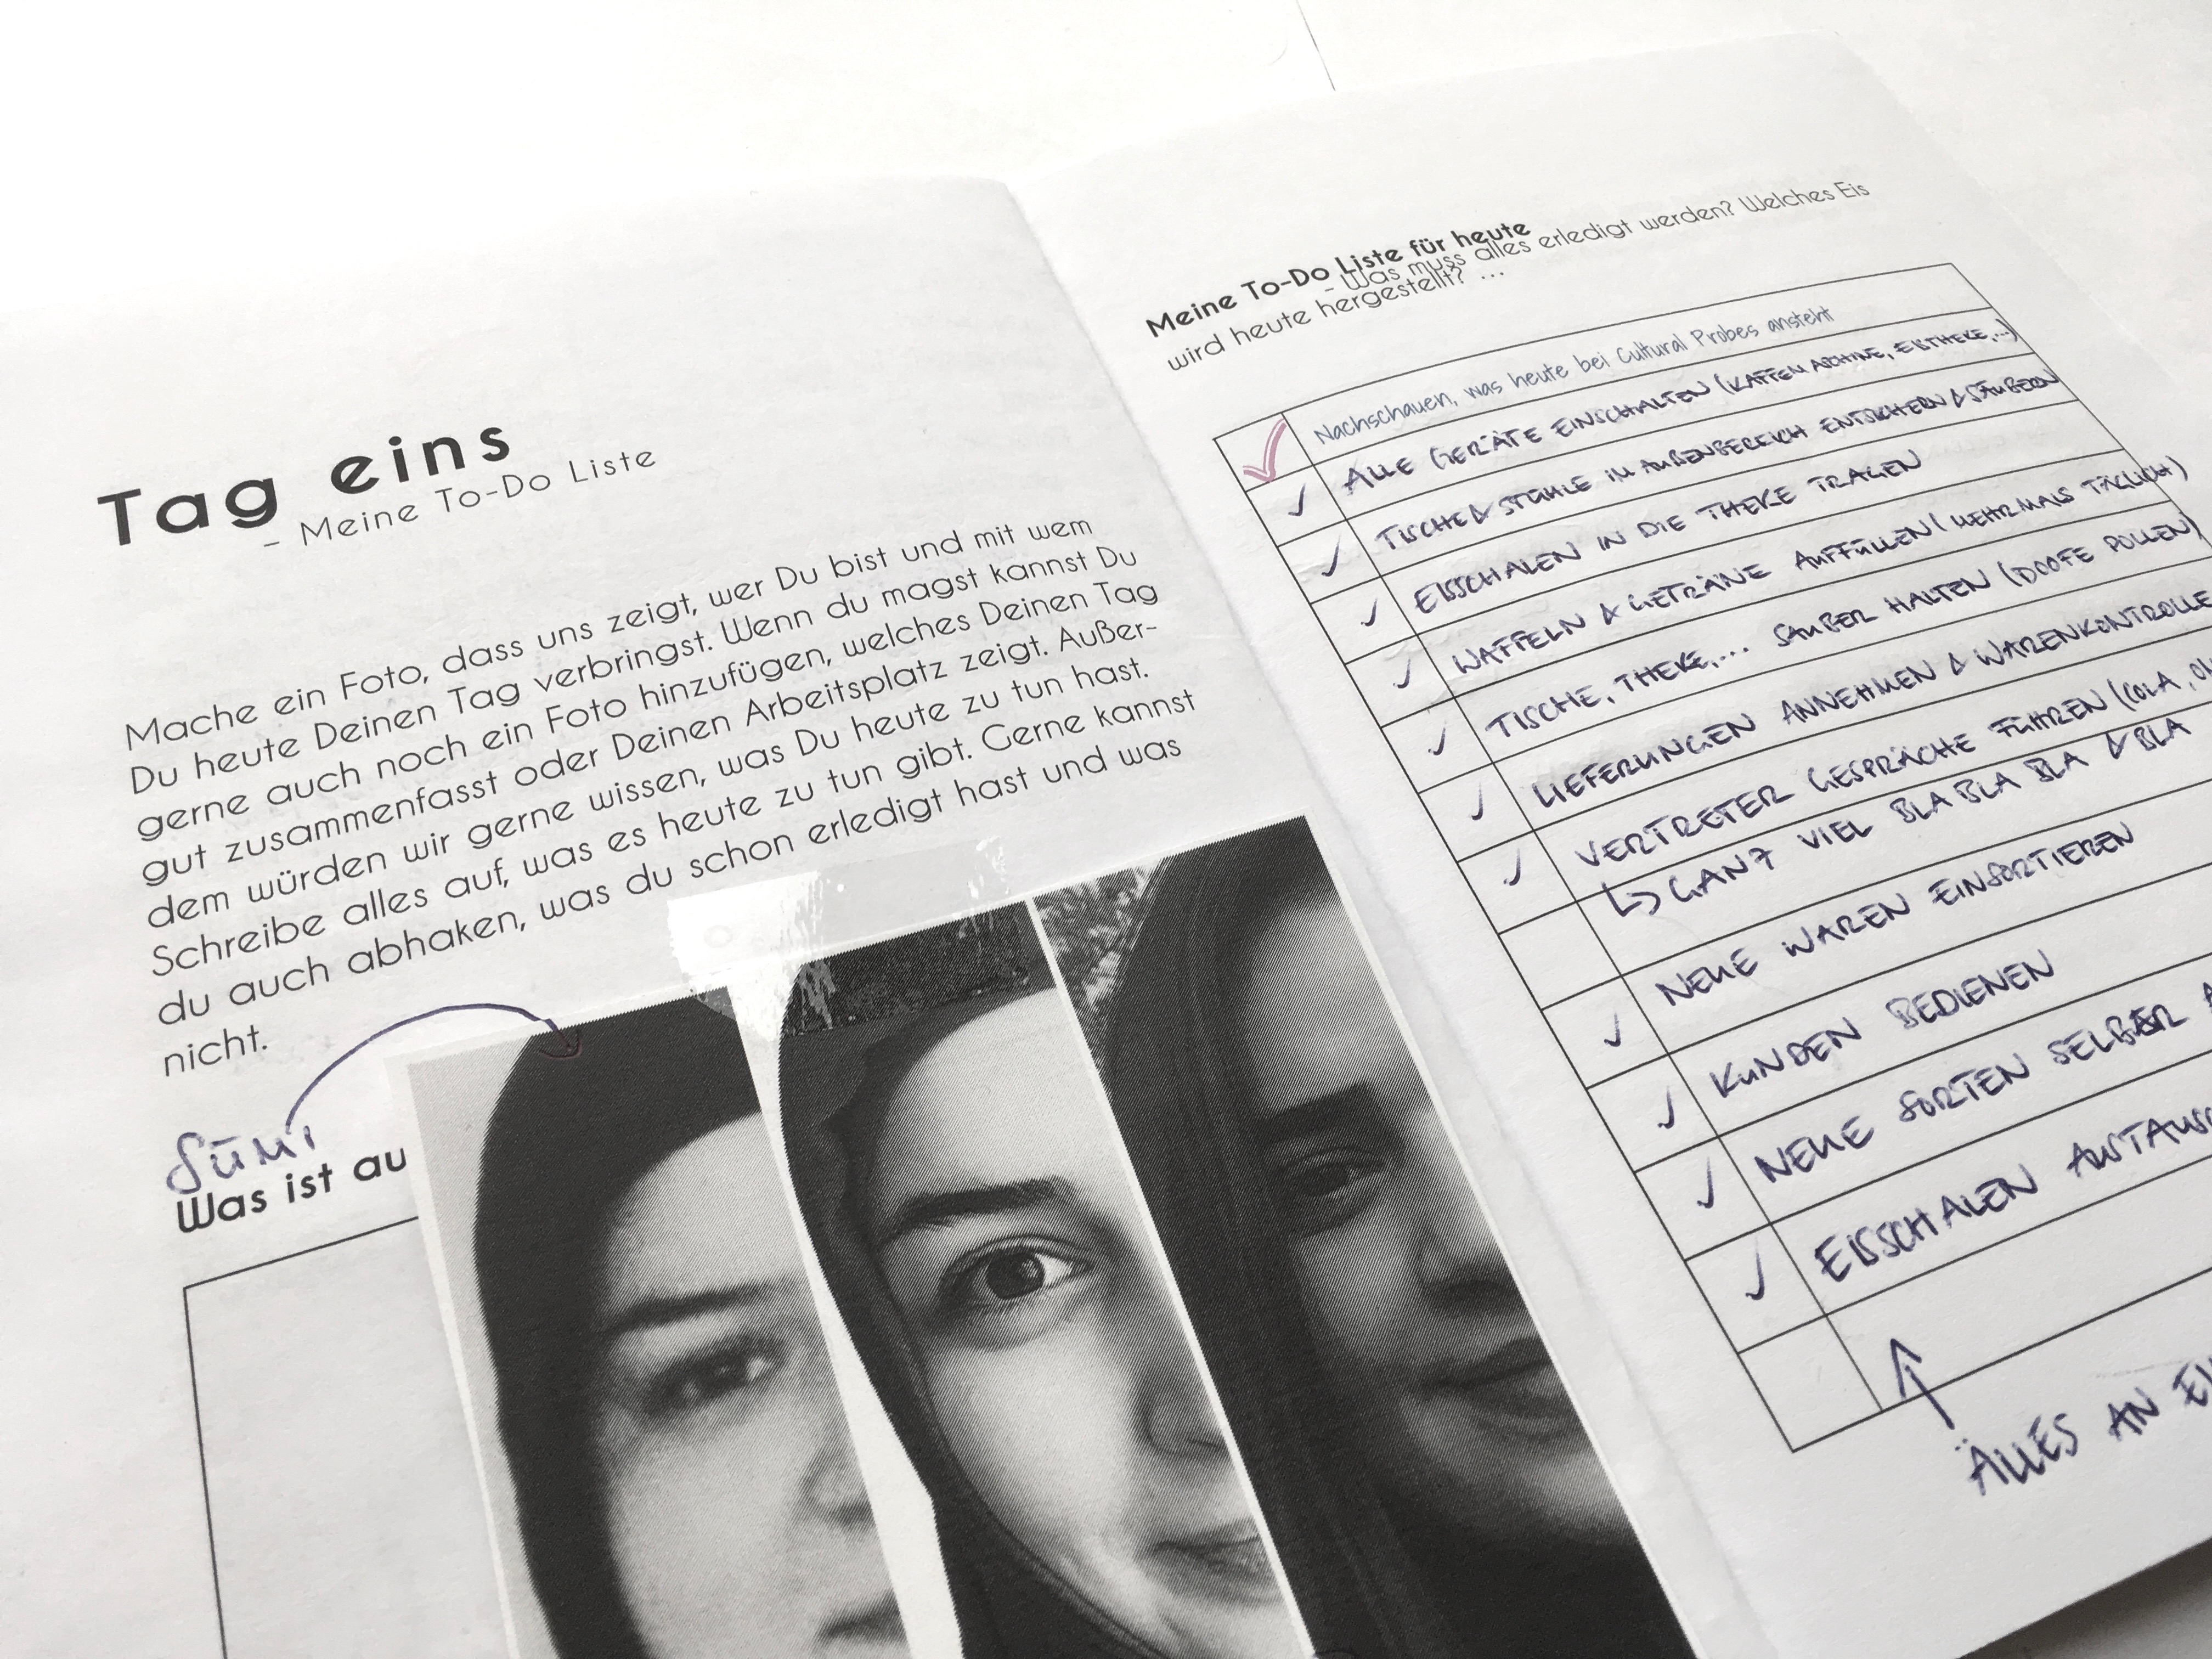 Tag eins
- Meine To-Do Liste
Mache ein Foto, dass uns zeigt, wer Du bist und mit wem
Du heute Deinen Tag verbringst. Wenn du magst kannst Du
gerne auch noch ein Foto hinzufügen, welches Deinen Tag
gut zusammenfasst oder Deinen Arbeitsplatz zeigt. Außer-
dem würden wir gerne wissen, was Du heute zu tun hast.
Schreibe alles auf, was es heute zu tun gibt. Gerne kannst
du auch abhaken, was du schon erledigt hast und was
nicht.
Was ist au
Meine To-Do Liste für heute
- Was muss alles erledigt werden? Welches Eis
wird heute hergestellt? ...
Nachschauen, was heute bei Cultural Probes ansteht
ALLE GERÄTE EINSCHALTEN (KAFFEEMASCHINE, EISTHEKE,...)
TISCHE & STÜHLE IM AUßENBEREICH ENTSICHERN & SÄUBERN
EISSCHALEN IN DIE THEKE TRAGEN
WAFFELN & GETRÄNE AUFFÜLLEN (MEHRMALS TÄGLICH)
TISCHE, THEKE,... SAUBER HALTEN (DOOFE POLLEN)
LIEFERUNGEN ANNEHMEN & WARENKONTROLLE
VERTRETER GESPRÄCHE FÜHREN (COLA,
↳ GANZ VIEL BLA BLA BLA & BLA
NEUE WAREN EINSORTIEREN
KUNDEN BEDIENEN
NEUE SORTEN SELBER
EISSCHALEN AUSTAUSC
ALLES AN EI